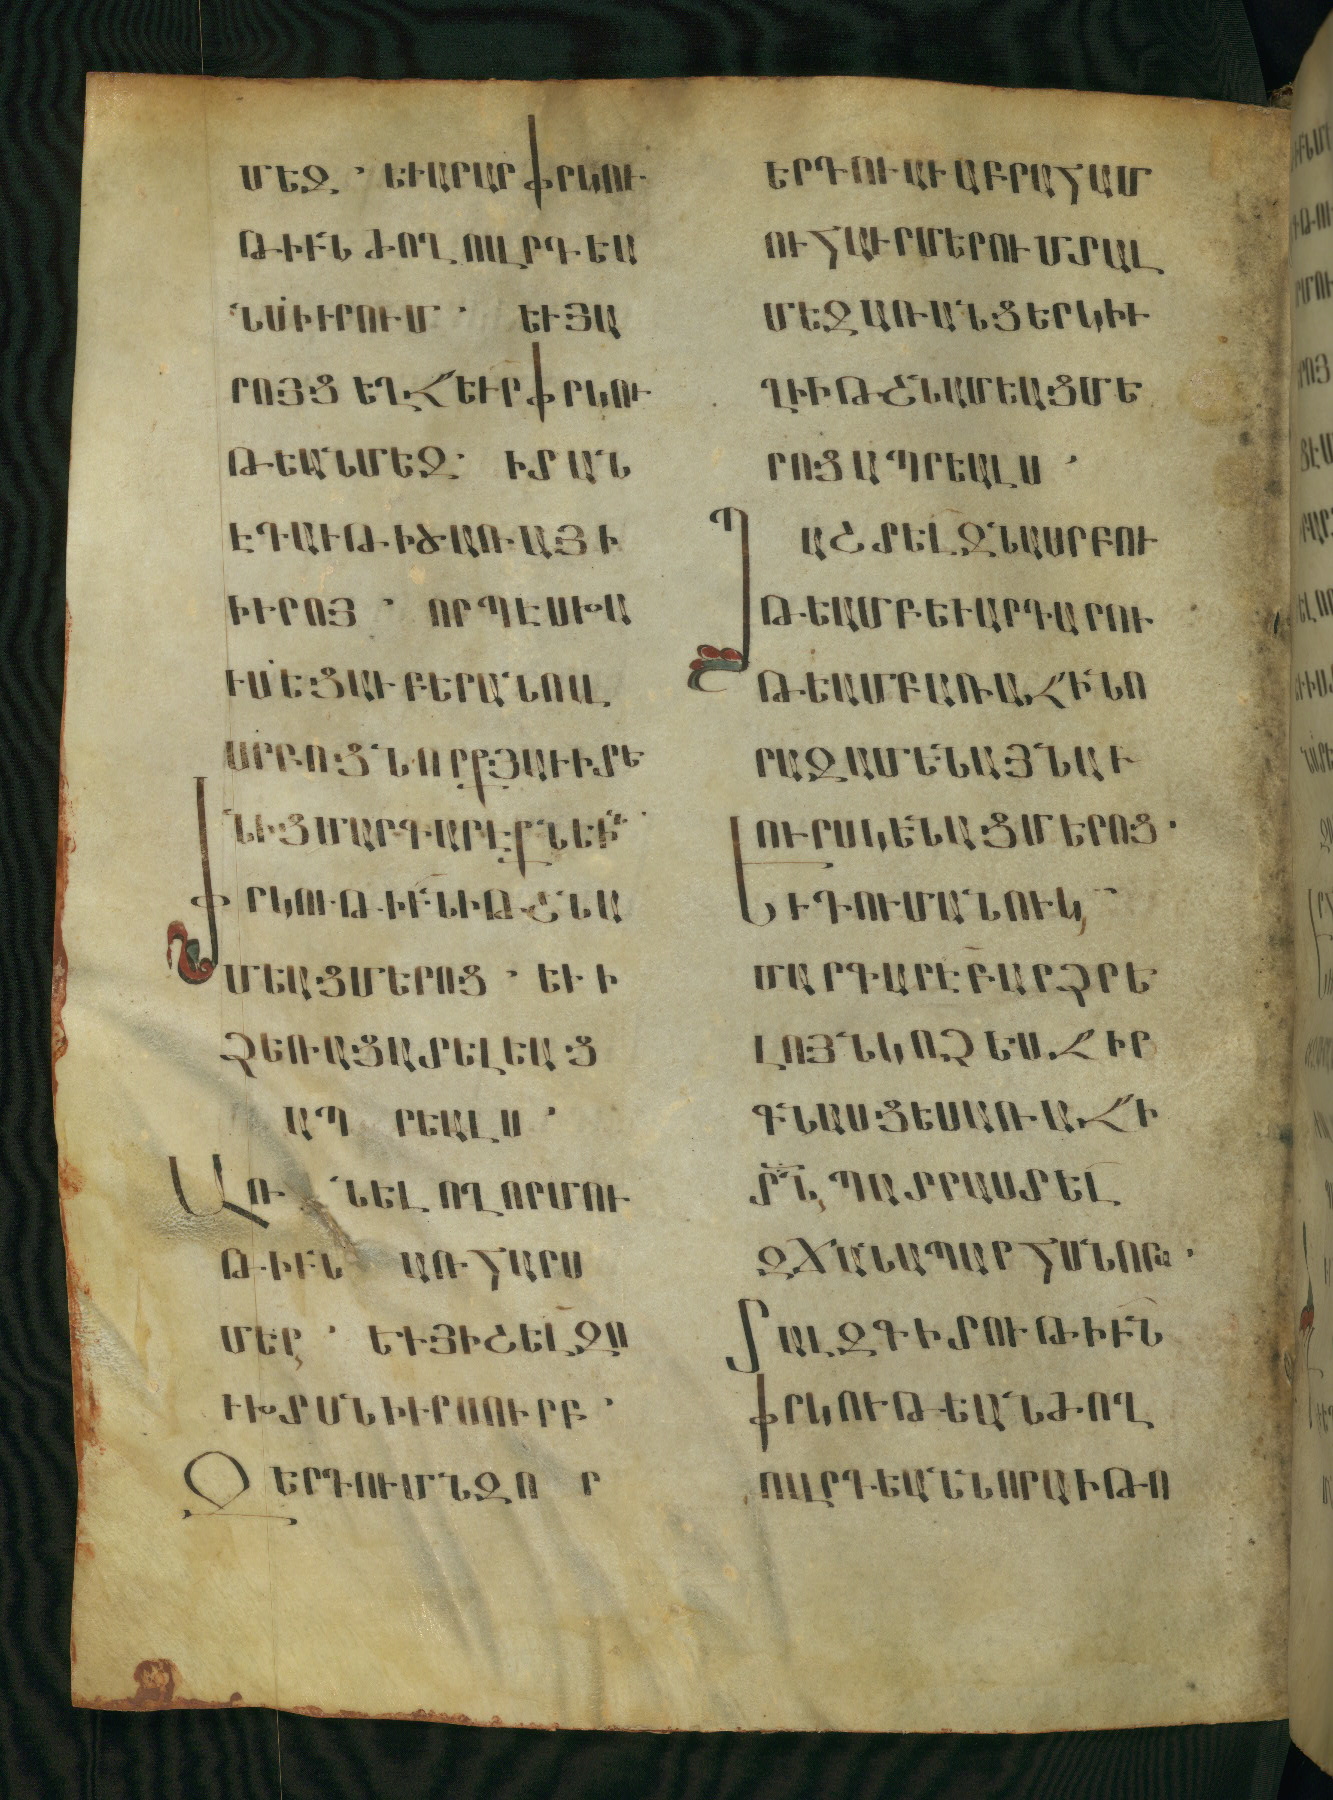 ՄԵԶ ՝ ԵՒԱՐԱՐՓՐԿՈՒ
ԹԻՒՆ ԺՈՂՈՎՐԴԵԱ
ՆՍԻՒՐՈՒՄ ՝ ԵՒՅԱ
ՐՈՅՑ ԵՂՋԵՒՐՓՐԿՈՒ
ԹԵԱՆՄԵԶ ՝ ԻՏԱՆ
ԷԴԱՒԹԻԾԱՌԱՅԻ
ԻՒՐՈՅ ՝ ՈՐՊԷՍԽԱ
ՒՍԵՑԱՒԲԵՐԱՆՈՎ
ՍՐԲՈՑՆՈՐՔՅԱՒԻՏԵ
ՆԻՑՄԱՐԳԱՐԷՔՆԵԻՆ ՝
ՓՐԿՈՒԹԻՒՆԻԹՇՆԱ
ՄԵԱՑՄԵՐՈՑ ՝ ԵՒԻ
ՁԵՌԱՑԱՏԵԼԵԱՑ
ԱՊՐԵԱԼՍ ՝
ԱՌՆԵԼ ՈՂՈՐՄՈՒ
ԹԻՒՆ ԱՌՀԱՐՍ
ՄԵՐ ՝ ԵՒՅԻՇԵԼԶՈ
ՒԽՏՍՆԻՒՐՍՈՒՐԲ ՝
ԶԵՐԴՈՒՄՆԶՈՐ
ԵՐԴՈՒԱՒԱԲՐԱՀԱՄ
ՈՒՀԱՒՐՄԵՐՈՒՄՏԱԼ
ՄԵԶԱՌԱՆՑԵՐԿԻՒ
ՂԻԻԹՇՆԱՄԵԱՑՄԵ
ՐՈՑԱՊՐԵԱԼՍ ՝
ՊԱՇՏԵԼԶՆԱՍՐԲՈՒ
ԹԵԱՄԲԵՒԱՐԴԱՐՈՒ
ԹԵԱՄԲԱՌԱՋԻՆՈ
ՐԱԶԱՄԵՆԱՅՆԱՒ
ՈՒՐՍԿԵՆԱՑՄԵՐՈՑ ՝
ԵՒԴՈՒՄԱՆՈՒԿ
ՄԱՐԳԱՐԷԲԱՐՁՐԵ
ԼՈՅՆԿՈՉԵՍՋԻՐ
ԳՆԱՍՑԵՍԱՌԱՋԻ
ՏՆ ՊԱՏՐԱՍՏԵԼ
ԶՃԱՆԱՊԱՐՀՍՆՈՐԱ ՝
ՏԱԼԶԳԻՏՈՒԹԻՒՆ
ՓՐԿՈՒԹԵԱՆԺՈՂ
ՈՎՐԴԵԱՆՆՈՐԱԻԹՈ